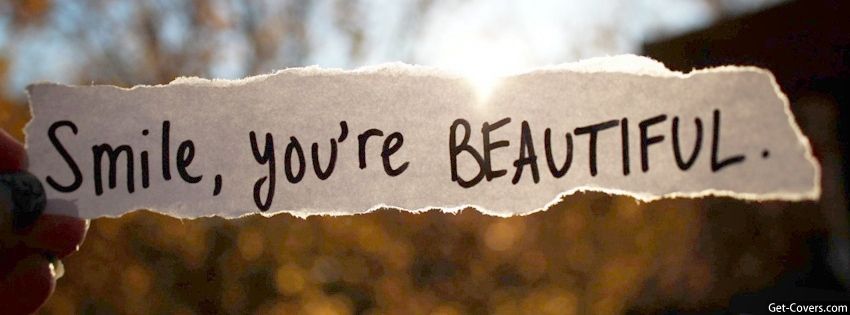 Smile, you're BEAUTIFUL.
Get-Covers.com